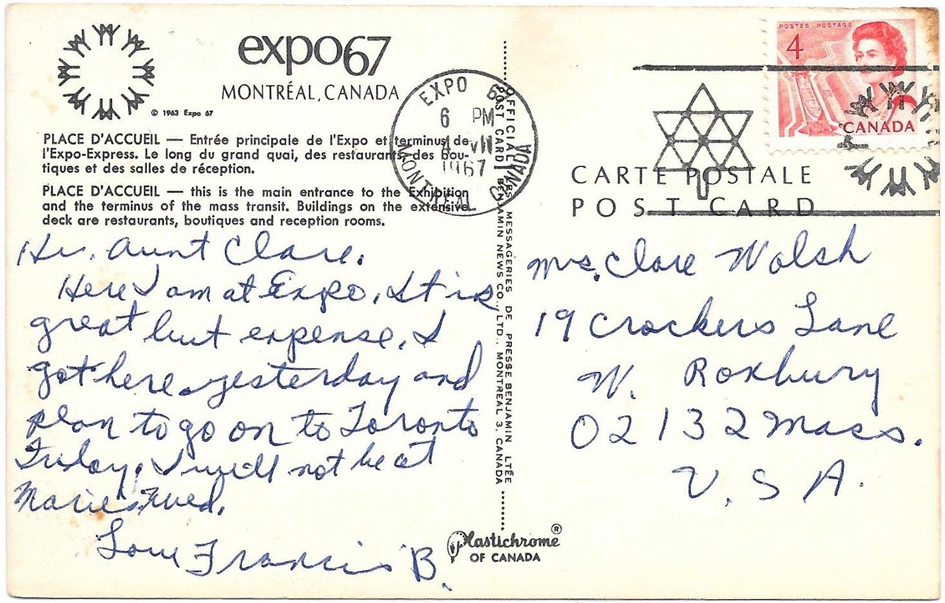 expo67
MONTRÉAL, CANADA
© 1963 Expo 67
PLACE D'ACCUEIL — Entrée principale de l'Expo et terminus de
l'Expo-Express. Le long du grand quai, des restaurants, des bou-
tiques et des salles de réception.
PLACE D'ACCUEIL — this is the main entrance to the Exhibition
and the terminus of the mass transit. Buildings on the extensive
deck are restaurants, boutiques and reception rooms.
Hi. Aunt Clare.
Here I am at Expo. It is
great but expense. I
got here yesterday and
plan to go on to Toronto
Friday. I will not be at
Maries Wed.
Love Francis B.
Plastichrome®
OF CANADA
OFFICIAL POST CARD
LES MESSAGERIES DE PRESSE BENJAMIN LTÉE
BENJAMIN NEWS CO., LTD., MONTREAL 3, CANADA
EXPO
6 PM
VII
1967
MONTREAL CANADA
POSTES POSTAGE
4
CANADA
CARTE POSTALE
POST CARD
Mrs. Clare Walsh
19 Crockers Lane
W. Roxbury
02132 Mass.
U.S A.